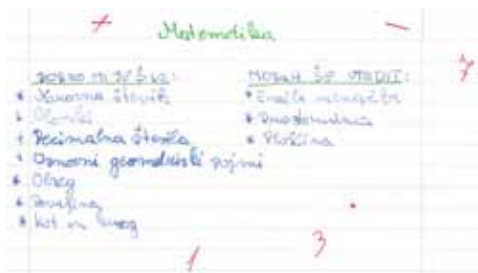 Matematika
DOBRO MI JE ŠLO:
* Naravna števila
* Ulomki
* Decimalna števila
* Osnovni geometrijski pojmi
* Obseg
* Površina
* Kot in krog
MORAM ŠE UTRDIT:
* Enačbe
* Prostornina
* Ploščina
1
3
7